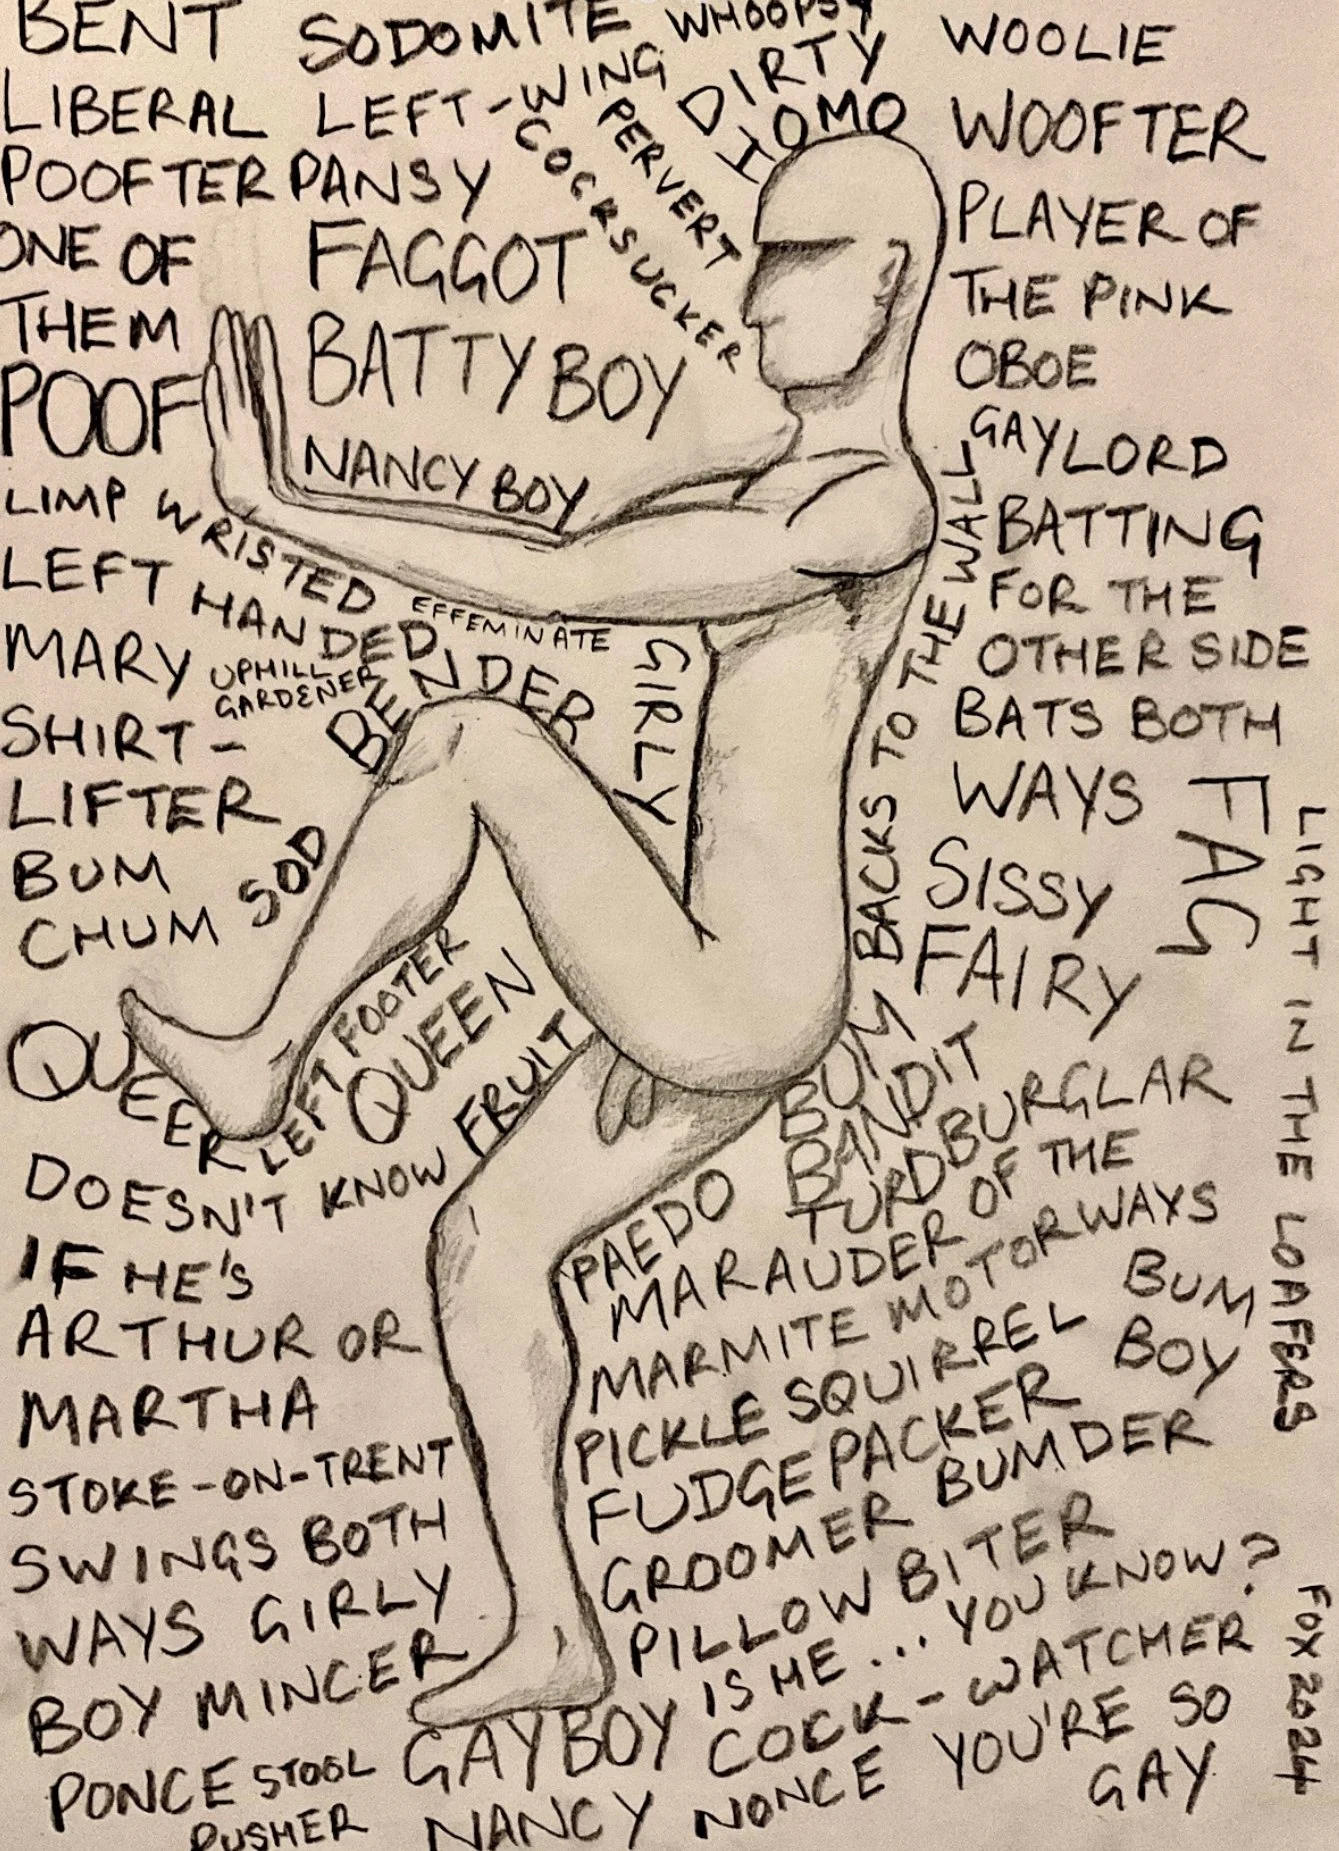 BENT
SODOMITE
WHOOPSY
LIBERAL
LEFT-WING
DIRTY
HOMO
PERVERT
COCKSUCKER
POOFTER
PANSY
ONE OF
THEM
FAGGOT
POOF
BATTY BOY
NANCY BOY
LIMP WRISTED
LEFT HANDED
EFFEMINATE
MARY
UPHILL
GARDENER
BENDER
GIRLY
SHIRT-
LIFTER
BUM
CHUM
SOD
QUEER
LEFT FOOTER
QUEEN
FRUIT
DOESN'T KNOW
IF HE'S
ARTHUR OR
MARTHA
STOKE-ON-TRENT
SWINGS BOTH
WAYS GIRLY
BOY MINCER
PONCE STOOL
PUSHER
WOOLIE
WOOFTER
PLAYER OF
THE PINK
OBOE
GAYLORD
BACKS TO THE WALL
BATTING
FOR THE
OTHER SIDE
BATS BOTH
WAYS
FAG
SISSY
FAIRY
LIGHT IN THE LOAFERS
BUM
BANDIT
TURD BURGLAR
PAEDO
MARAUDER OF THE
MARMITE MOTORWAYS
PICKLE SQUIRREL
BUM
BOY
FUDGEPACKER
GROOMER BUMDER
PILLOW BITER
IS HE... YOU KNOW?
GAYBOY
COCK-WATCHER
NANCY NONCE
YOU'RE SO
GAY
FOX 2024